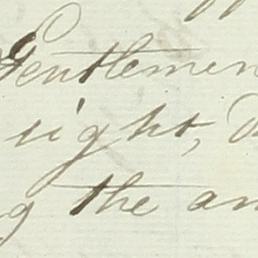 Gentlemen
right,
the an